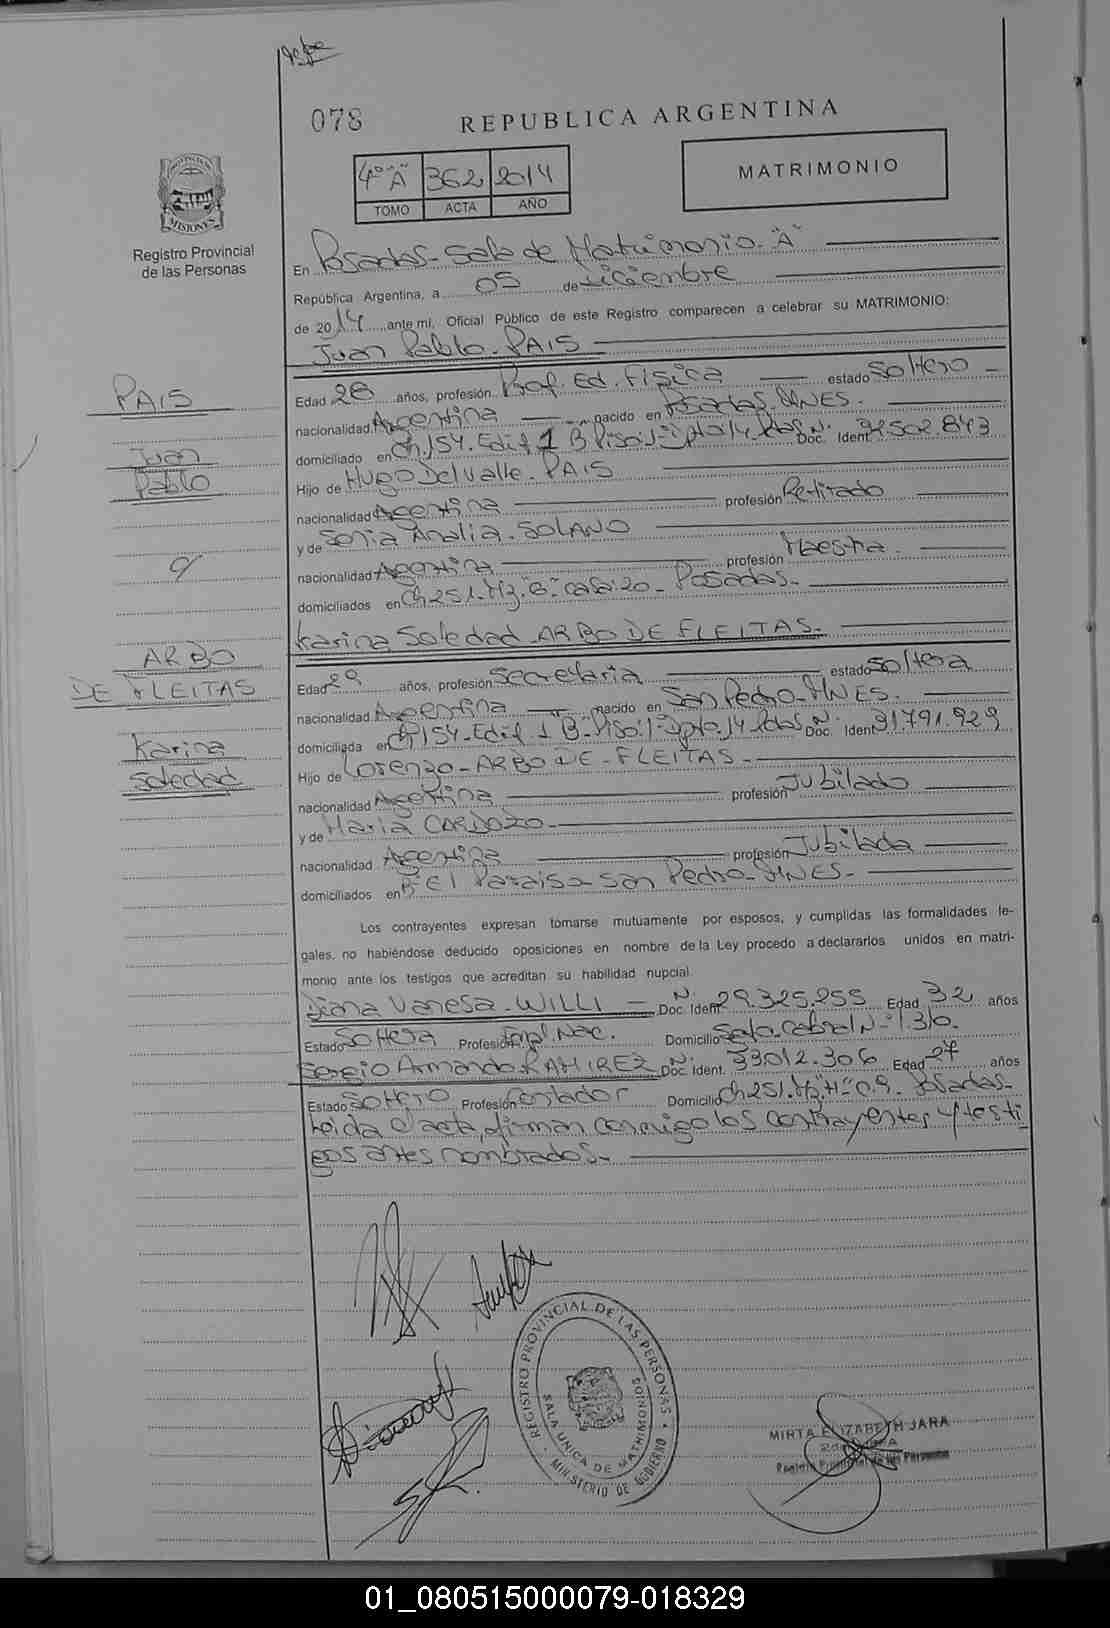 078
REPUBLICA ARGENTINA
4º "A" 362 2014
TOMO ACTA AÑO
MATRIMONIO
PROVINCIA DE MISIONES
Registro Provincial
de las Personas
En Posadas - Sala de Matrimonio - "A"
República Argentina, a 05 de diciembre
de 2014 ante mí, Oficial Público de este Registro comparecen a celebrar su MATRIMONIO:
Juan Pablo - PAIS
PAIS
Juan
Pablo
c/
ARBO
DE FLEITAS
Karina
Soledad
Edad 28 años, profesión Prof. Ed. Física estado Soltero
nacionalidad Argentina nacido en Posadas. MNES.
domiciliado en Ch. 154. Edif 1 B. Piso: 1 - Dpto 14 Pdas Doc. Ident. Nº 32502.843
Hijo de Hugo Del Valle - PAIS
nacionalidad Argentina profesión Retirado
y de Sonia Analia - SOLANO
nacionalidad Argentina profesión Maestra.
domiciliados en Ch 251. Mz. "B" casa: 20 - Posadas -
Karina Soledad ARBO DE FLEITAS.
Edad 29 años, profesión Secretaria estado Soltera
nacionalidad Argentina nacido en San Pedro - MNES.
domiciliada en Ch 154 - Edif 1 B - Piso: 1 - Dpto. 14 Pdas Doc. Ident. Nº 31.791.929
Hijo de Lorenzo - ARBO DE - FLEITAS -
nacionalidad Argentina profesión Jubilado
y de Maria CARDOZO
nacionalidad Argentina profesión Jubilada
domiciliados en Bº El Paraiso - San Pedro - MNES -
Los contrayentes expresan tomarse mutuamente por esposos, y cumplidas las formalidades le-
gales, no habiéndose deducido oposiciones en nombre de la Ley procedo a declararlos unidos en matri-
monio ante los testigos que acreditan su habilidad nupcial.
Diana Vanesa - WILLI - Doc. Ident Nº 29.325.255 Edad 32 años
Estado Soltera Profesión Empl. Nac. Domicilio Sgto. Cabral Nº 1.310.
Sergio Armando RAMIREZ Doc. Ident. Nº 33012.306 Edad 27 años
Estado Soltero Profesión Contador Domicilio Ch 251. Mz. "H" c. 9. Posadas -
Leida el acta, firman conmigo los contrayentes y testi
gos antes nombrados. -
REGISTRO PROVINCIAL DE LAS PERSONAS
SALA UNICA DE MATRIMONIOS
MINISTERIO DE GOBIERNO
MIRTA ELIZABETH JARA
Registro Provincial de las Personas
01_080515000079-018329